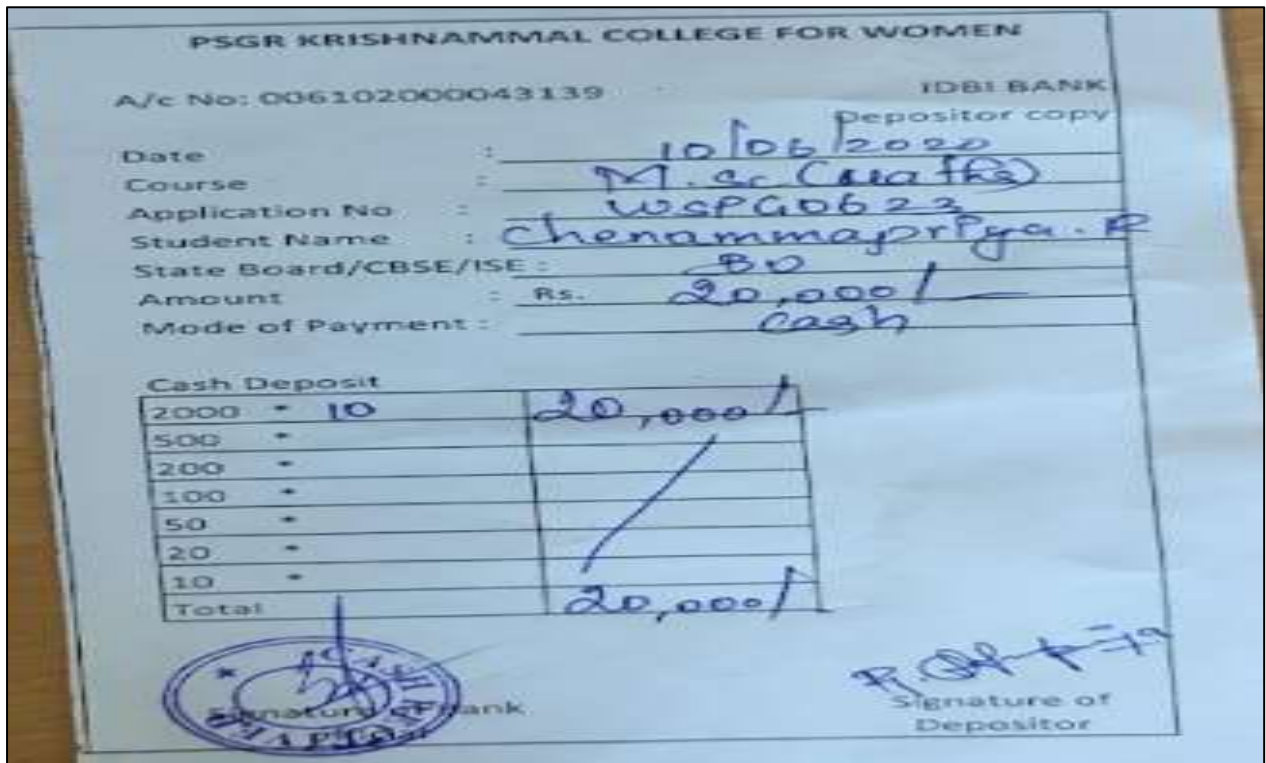 PSGR KRISHNAMMAL COLLEGE FOR WOMEN
A/c No: 006102000043139 IDBI BANK
Depositor copy
Date : 10/06/2020
Course : M.Sc (Maths)
Application No : WSPG0623
Student Name : Chenammapriya. R
State Board/CBSE/ISE :
Amount : Rs. 20,000/-
Mode of Payment : cash
Cash Deposit
2000 * 10 20,000/-
500 *
200 *
100 *
50 *
20 *
10 *
Total 20,000/-
CASH
Signature of Bank
Signature of
Depositor